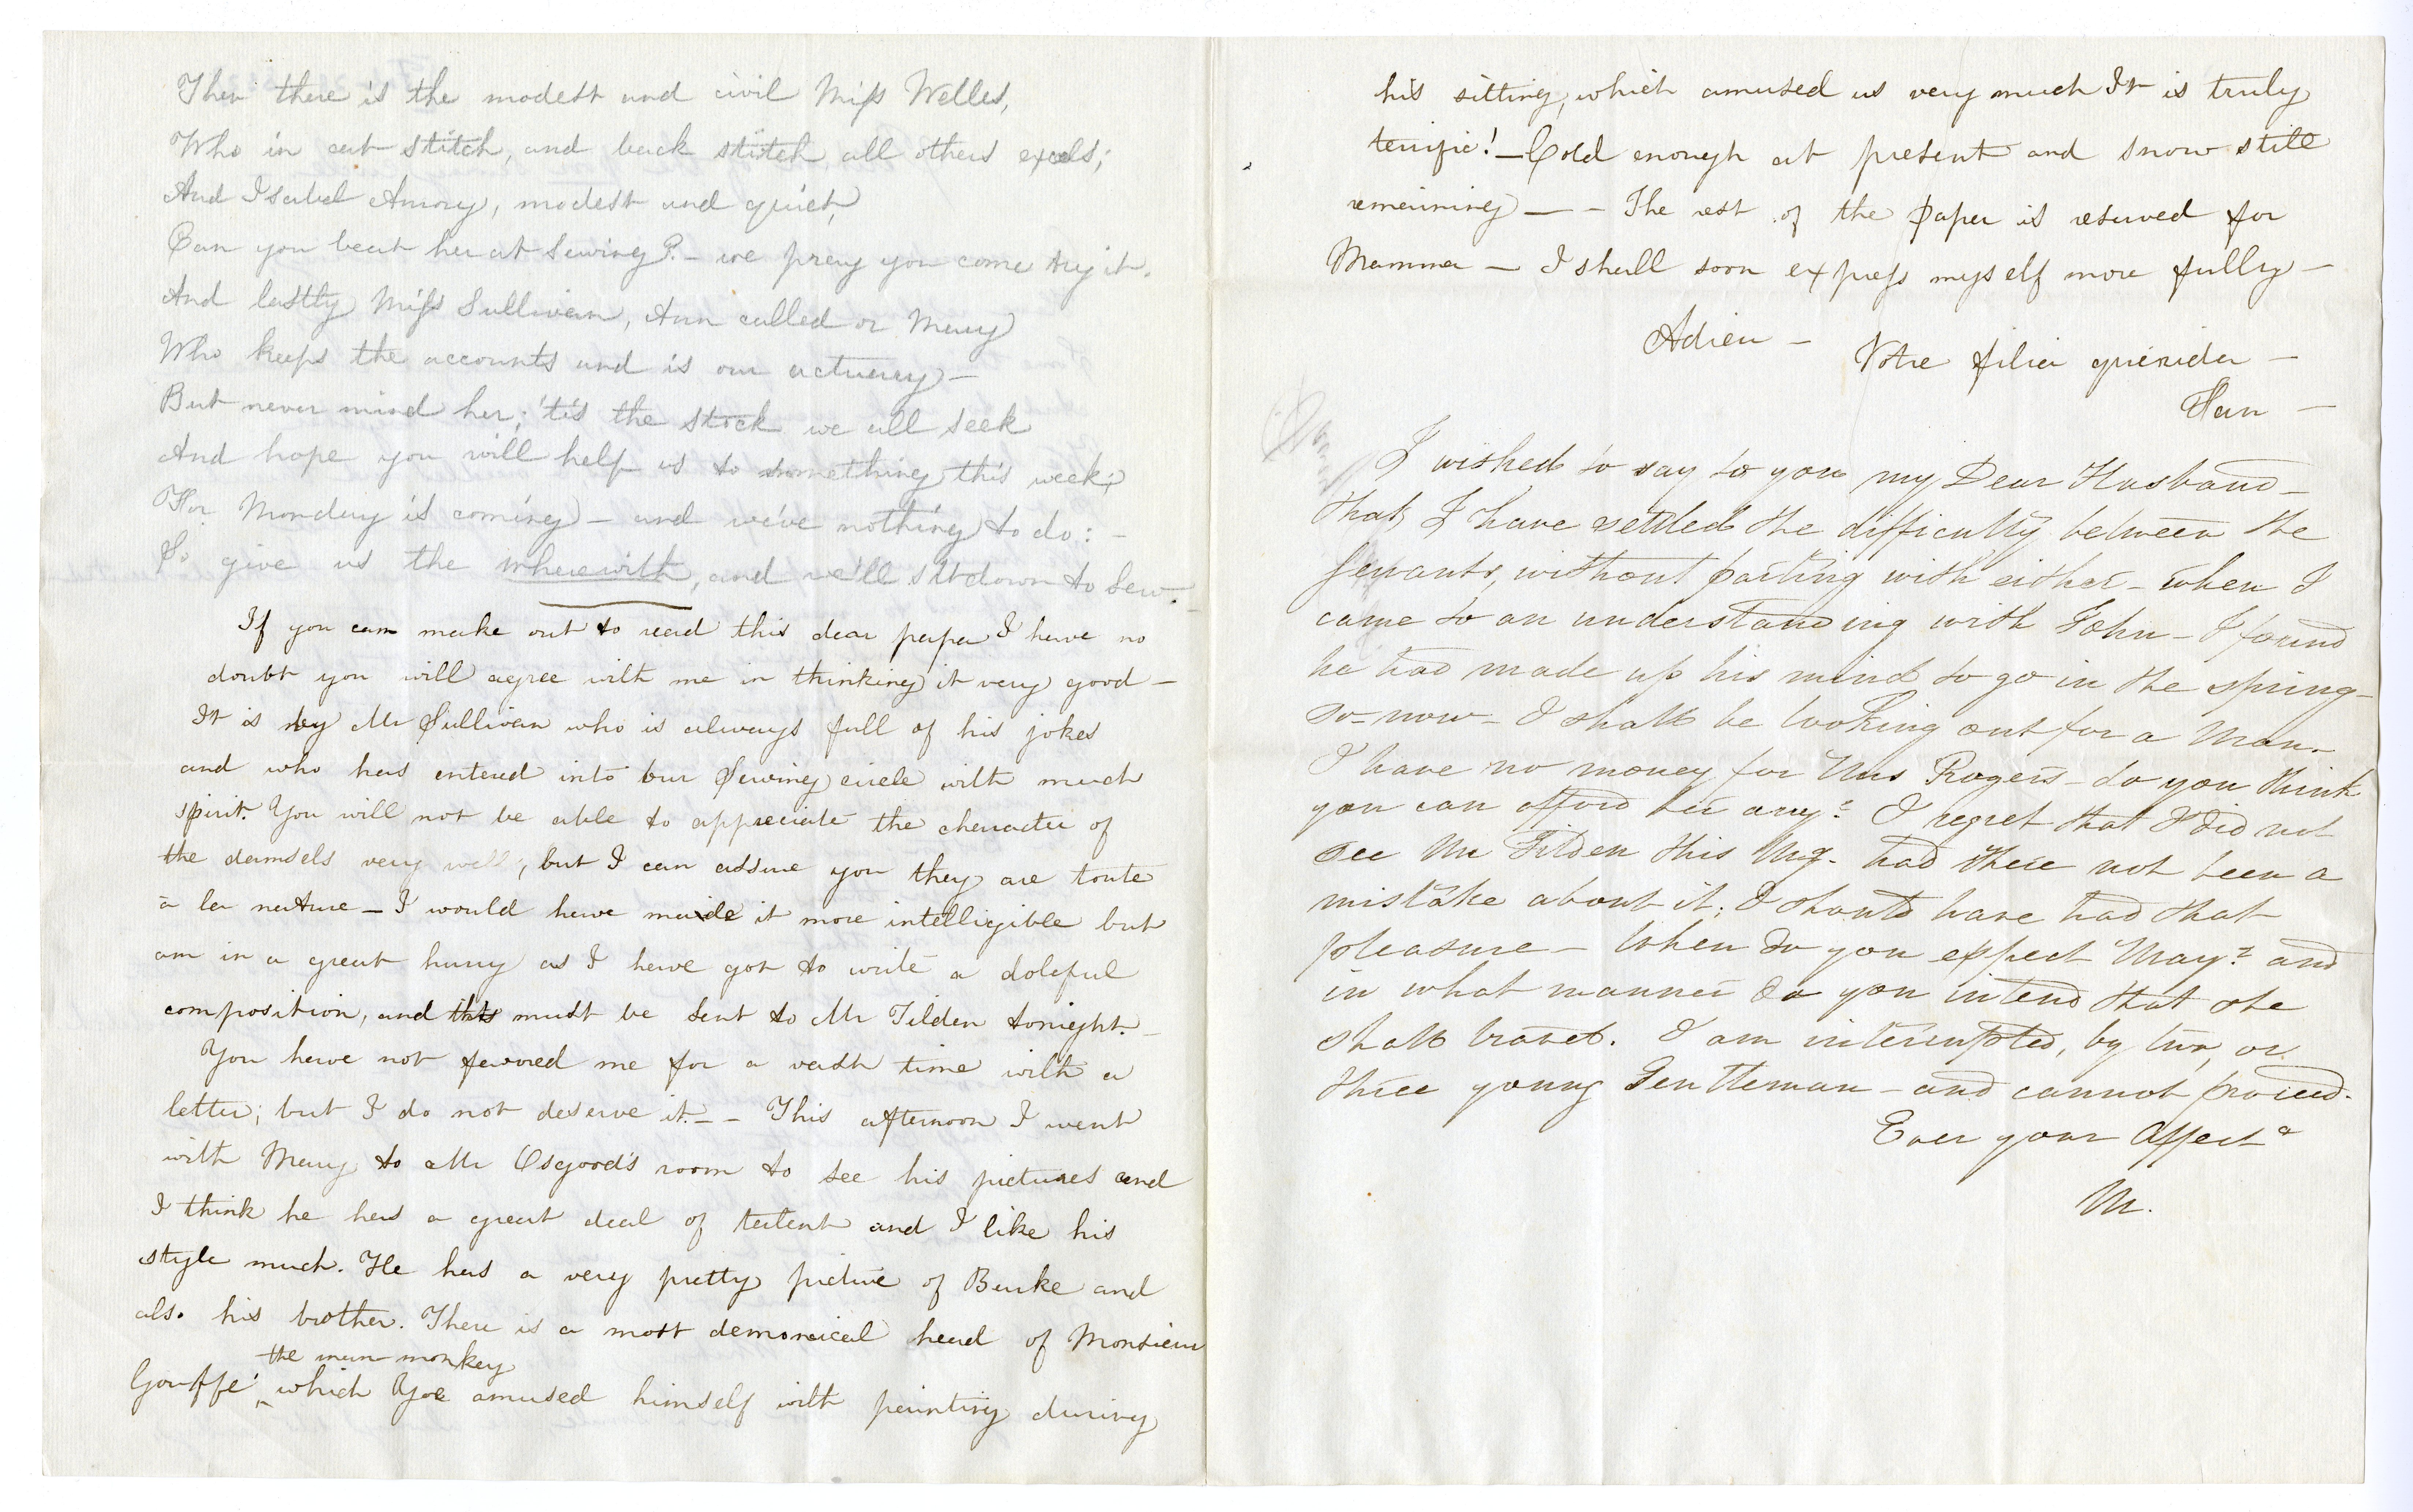 Then there is the modest and civil Miss Welles,
Who in cat stitch, and back stitch all others excels;
And Isabel Amory, modest and quiet,
Can you beat her at Sewing? - we pray you come try it.
And lastly Miss Sullivan, Ann called or Mary
Who keeps the accounts and is our actuary -
But never mind her; 'tis the stock we all seek
And hope you will help us to something this week;
For Monday is coming - and we've nothing to do: -
So give us the wherewith, and we'll sit down to Sew. -
If you can make out to read this dear papa I have no
doubt you will agree with me in thinking it very good -
It is by Mr Sullivan who is always full of his jokes
and who has entered into our Sewing circle with much
spirit. You will not be able to appreciate the character of
the damsels very well, but I can assure you they are toute
à la nature - I would have made it more intelligible but
am in a great hurry as I have got to write a doleful
composition, and this must be sent to Mr Tilden tonight. -
You have not favored me for a vast time with a
letter; but I do not deserve it. - - This afternoon I went
with Mary to Mr Osgood's room to see his pictures and
I think he has a great deal of talent and I like his
style much. He has a very pretty picture of Burke and
also his brother. There is a most demoniacal head of Monsieur
the man monkey
Gouffé ^ which Joe amused himself with painting during
his sitting, which amused us very much It is truly
terrific! - Cold enough at present and snow still
remaining - - The rest of the paper is reserved for
Mamma - I shall soon express myself more fully -
Adieu - Votre filia querida -
Fan -
I wished to say to you my Dear Husband -
that I have settled the difficulty between the
Servants, without parting with either - when I
came to an understanding with John - I found
he had made up his mind to go in the spring -
so - now - I shall be looking out for a Man -
I have no money for Mrs Rogers - do you think
you can afford her any? I regret that I did not
see Mr Tilden this Mg. had there not been a
mistake about it; I should have had that
pleasure - When do you expect Mary? and
in what manner do you intend that she
shall travel. I am interrupted, by two, or
three young Gentleman - and cannot proceed.
Ever your Affect^e
M.